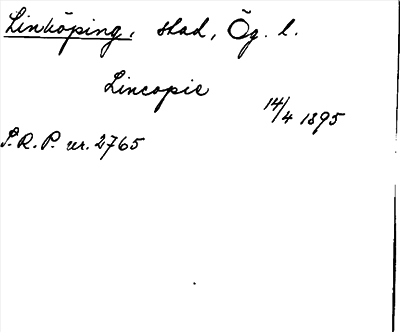 Linköping, stad, Ög. l.
Lincopie
14/4 1395
S.R.P. nr. 2765